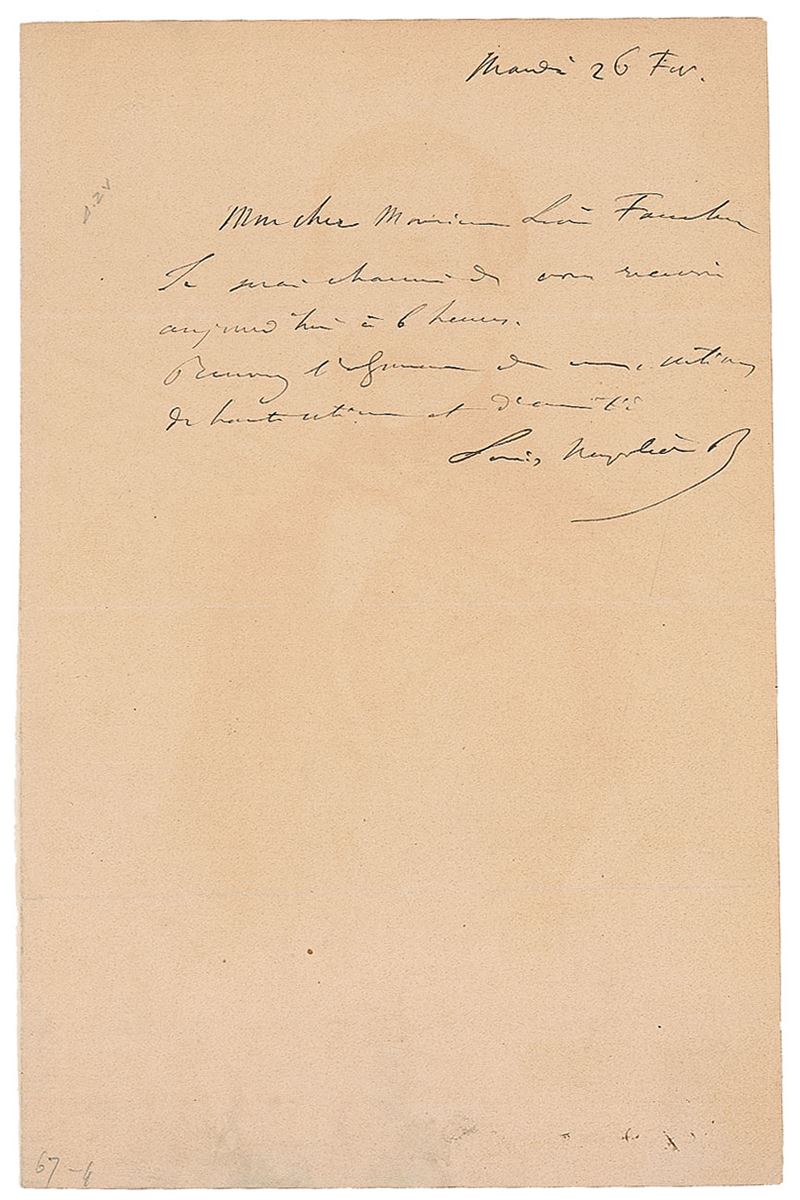 Mardi 26 Fev.
Mon cher Monsieur Léon Faucher
Je serai charmé de vous recevoir
aujourd'hui à 6 heures.
Recevez l'assurance de mes sentiments
de haute estime et d'amitié
Louis Napoléon B
67-4